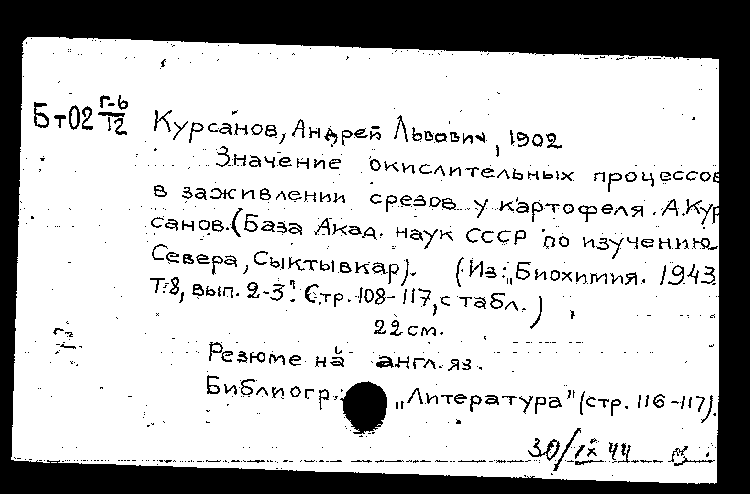 Бт02 Г-6/12
Курсанов, Андрей Львович, 1902
Значение окислительных процессов
в заживлении срезов у картофеля. А.Кур
санов. (База Акад. наук СССР по изучению
Севера, Сыктывкар). (Из: „Биохимия. 1943.
Т.8, вып. 2-3". Стр. 108-117, с табл.)
22 см.
Резюме на англ. яз.
Библиогр.: „Литература" (стр. 116-117).
30/IX 44